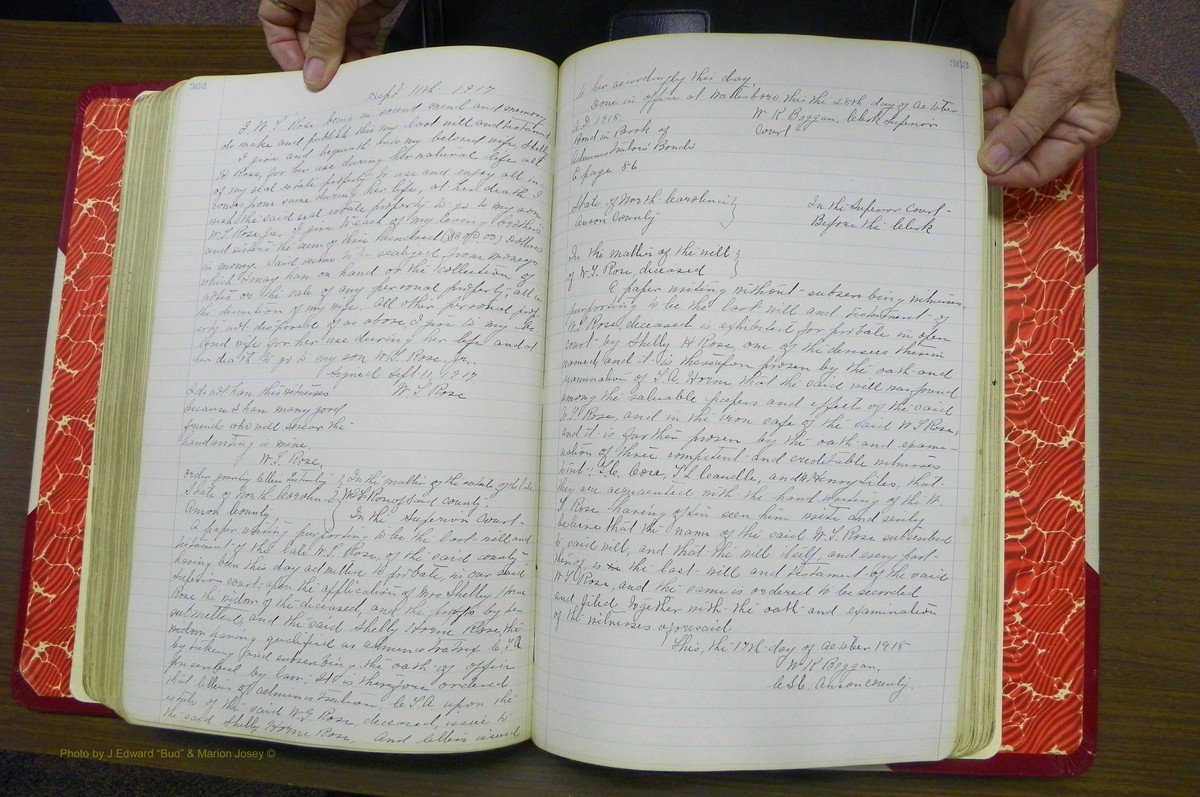 362
Sept 11th 1917
I, W. T. Rose being in sound mind and memory
do make and publish this my last will and testament
I give and bequeath unto my beloved wife, Shelly
H Rose, for her use during her natural life all
of my real estate property to use and enjoy all in-
comes from same during her life, at her death I
want the said real estate property to go to my son
W. T. Rose, Jr. I give to each of my loving brothers
and sisters the sum of three hundred ($300.00) Dollars
in money. Said sums to be realized from moneys
which I may have on hand or the collection of
notes or the sale of any personal property, all in
the discretion of my wife. All other personal prop-
erty not disposed of as above, I give to my be-
loved wife for her use during her life and at
her death to go to my son W. T. Rose, Jr.
Signed Sept. 11, 1917
W. T. Rose
I do not have this witnesses
because I have many good
friends who will swear the
handwriting is mine.
W. T. Rose,
order granting letters testamty In the matter of the estate of the late
State of North Carolina W. T. Rose of said county.
Anson County In the Superior Court-
A paper writing purporting to be the last will and
testament of the late W. T. Rose, of the said county
having been this day admitted to probate, in our said
Superior court, upon the application of Mrs Shelly Horne
Rose the widow of the deceased, and the proofs by her
submitted, and the said Shelly Horne Rose, the
widow having qualified as administratrix C. T. A.
by taking and subscribing the oath of office
prescribed by law: It is therefore ordered
that letters of administration, C. T. A upon the
estate of the said W. T. Rose, deceased, issue to
the said Shelly Horne Rose, And letters issued
363
to her accordingly this day,
Done in office at Wadesboro this the 28th day of October
A. D. 1918. W K Boggan, Clerk Superior
Court
Bond in Book of
Administrators Bonds
E page 86
State of North Carolina In the Superior Court-
Anson County Before the Clerk
In the matter of the will
of W. T. Rose, deceased
A paper writing without subscribing witnesses,
purporting to be the last will and testament of
W. T. Rose, deceased is exhibited for probate in open
court by Shelly H Rose, one of the devisees therein
named, and it is thereupon proven by the oath and
examination of T. A. Horne that the said will was found
among the valuable papers and effects of the said
W. T. Rose, and in the iron safe of the said W T Rose,
and it is further proven by the oath and exami-
nation of three competent and creditable witnesses
to wit; F. C. T. L Caudle, and Henry Liles, that
they are acquainted with the hand writing of the W.
T Rose having often seen him write and verily
believe that the name of the said W. T. Rose subscribed
to said will, and that the will itself and every part
thereof, is the last will and testament of the said
W. T. Rose, and the same is ordered to be recorded
and filed together with the oath and examination
of the witnesses aforesaid
This, the 17th day of October 1918
W K Boggan,
C. S. C. Anson county.
Photo by J Edward "Bud" & Marion Josey ©